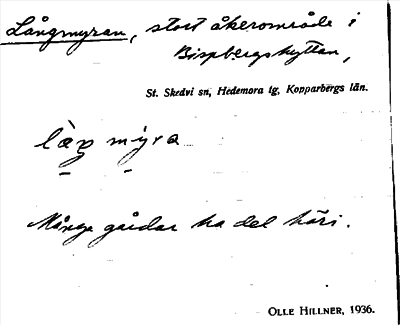 Långmyran, stort åkerområde i
Bispbergshyttan,
St. Skedvi sn, Hedemora tg, Kopparbergs län.
myra
Många gårdar ha del häri.
OLLE HILLNER, 1936.